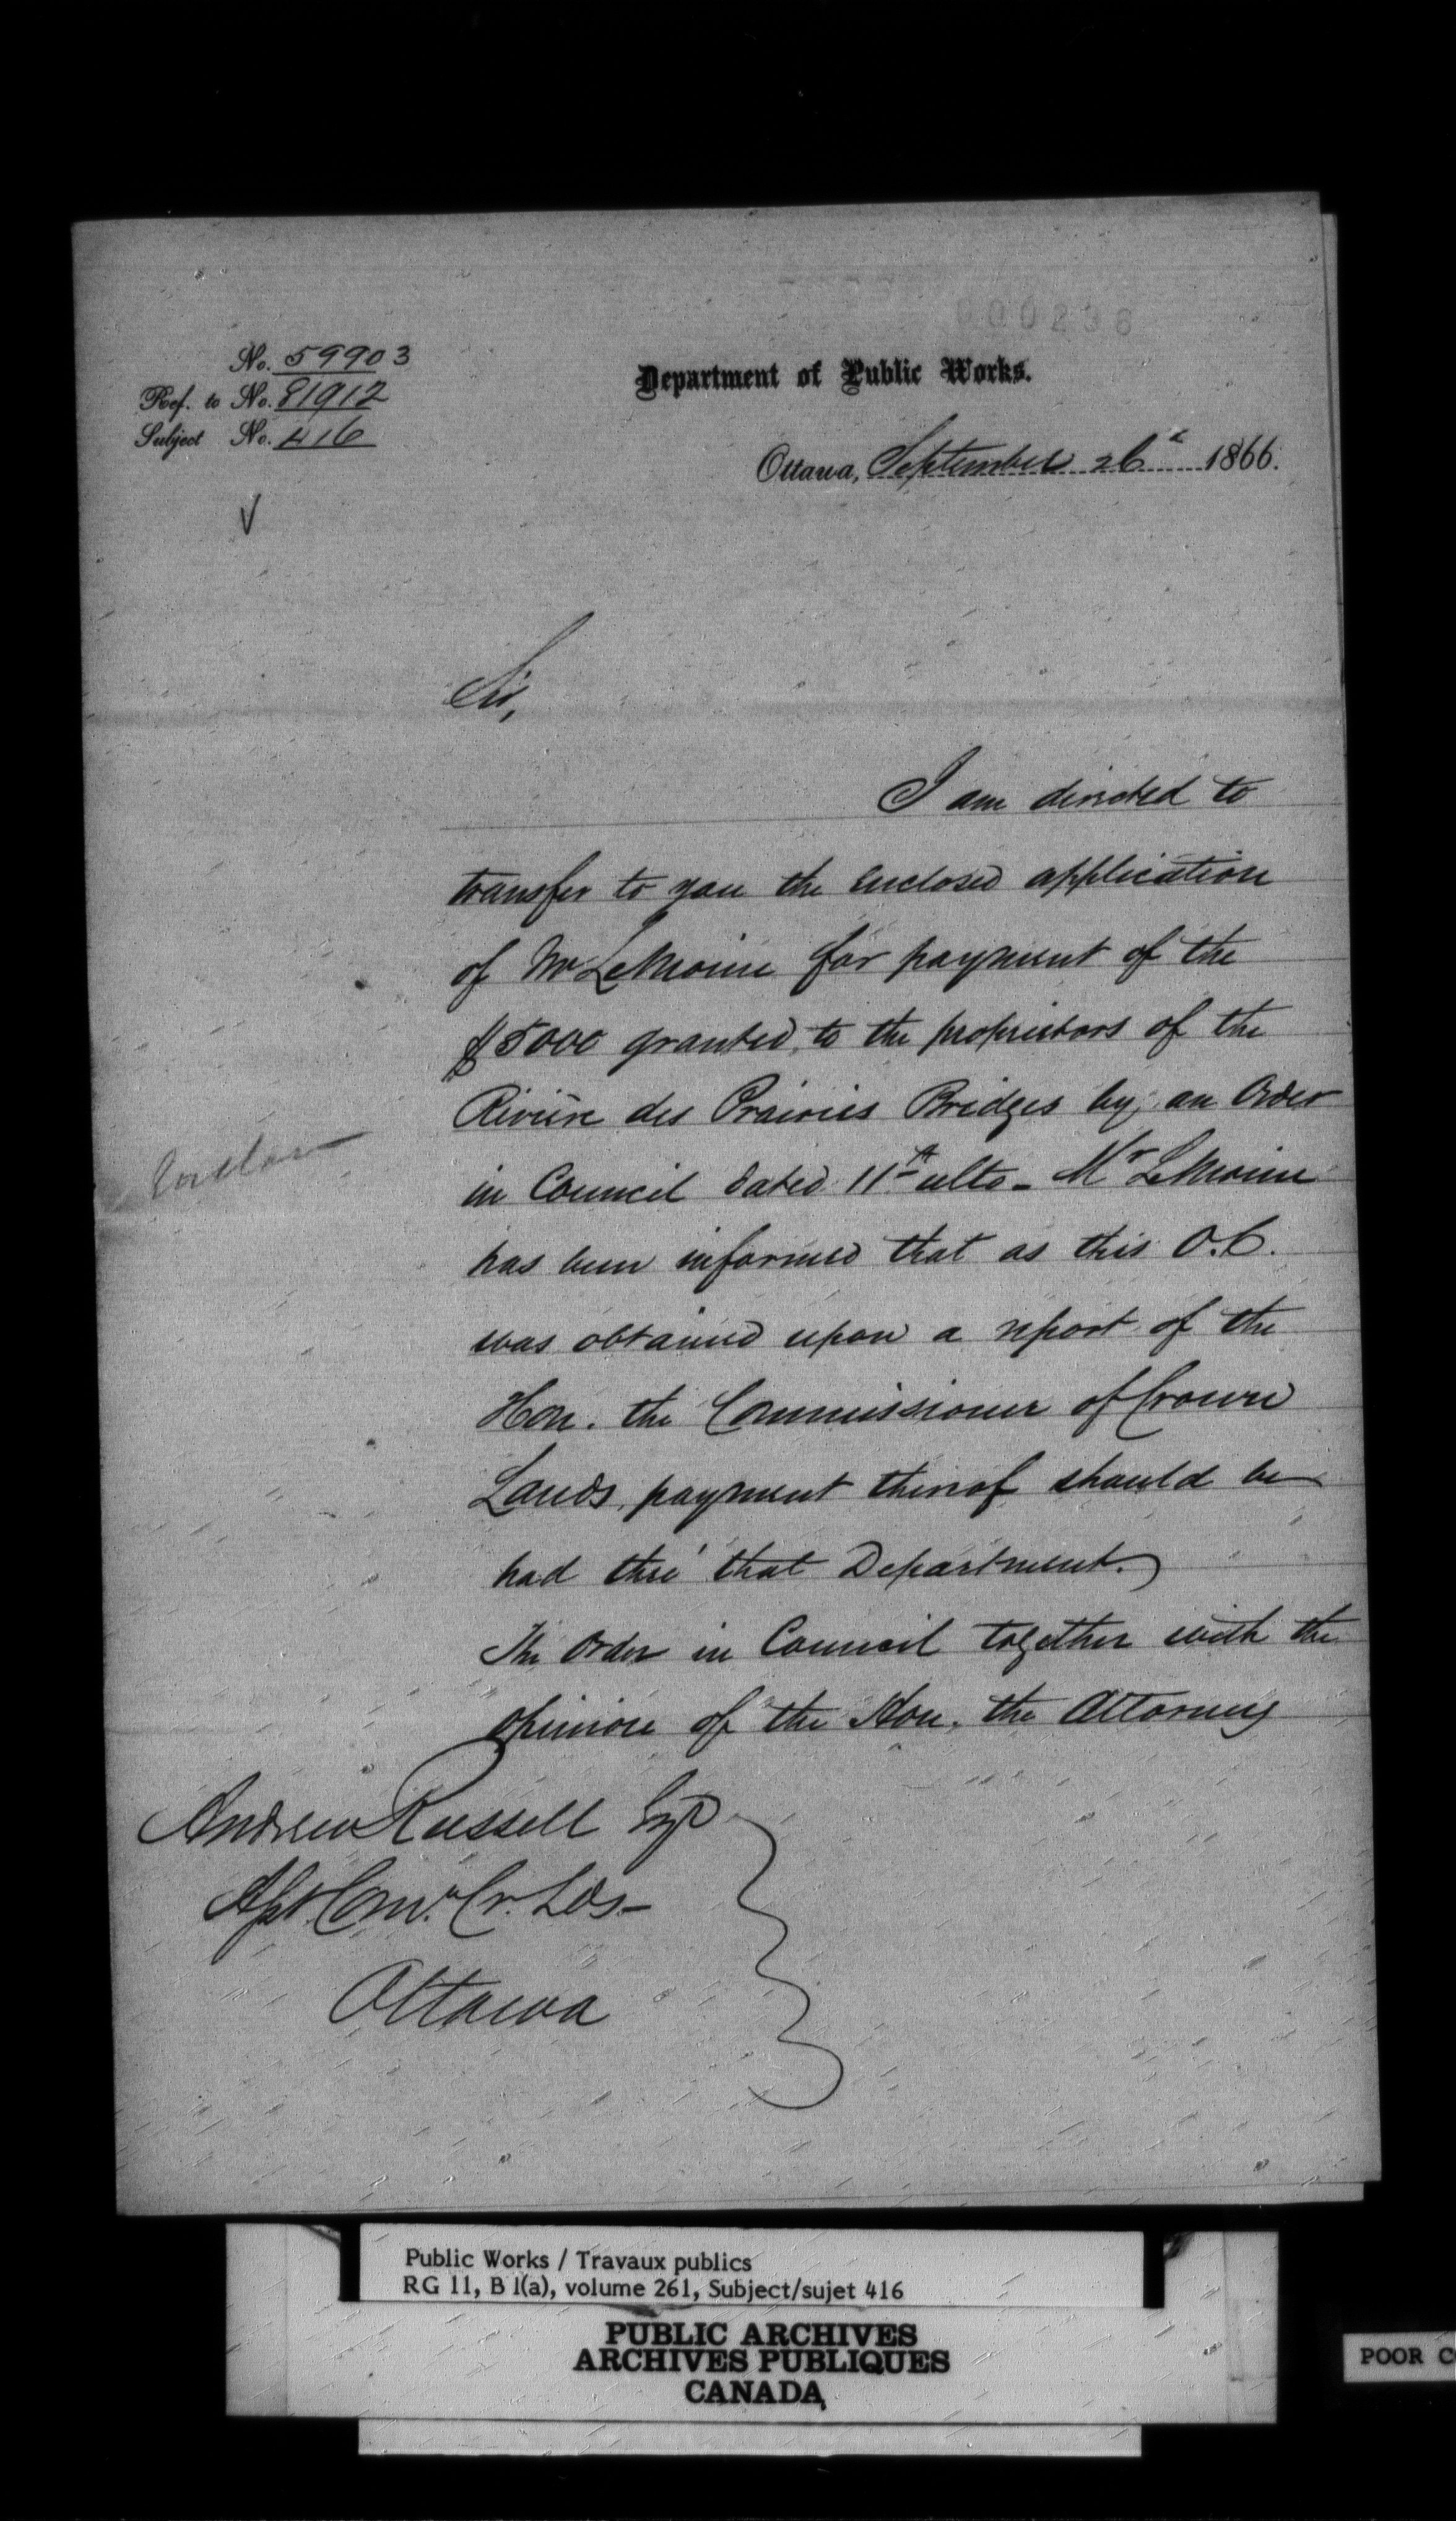 000236
No. 59903
Ref. to No. 81912
Subject No. 416
Department of Public Works.
Ottawa, September 26th 1866.
Sir,
I am directed to
transfer to you the enclosed application
of Mr LeMoine for payment of the
$5000 granted, to the proprietors of the
Rivière des Prairies Bridges by, an Order
in Council dated 11th ulto - Mr LeMoine
has been informed that as this O.C.
was obtained upon a report of the
Hon. the Commissioner of Crown
Lands, payment thereof should be
had thro' that Department.
The Order in Council together with the
opinion of the Hon. the Attorney
Andrew Russell Esqr
Asst. Comr. Cr. Lds -
Ottawa
Public Works / Travaux publics
RG 11, B 1(a), volume 261, Subject/sujet 416
PUBLIC ARCHIVES
ARCHIVES PUBLIQUES
CANADA
POOR